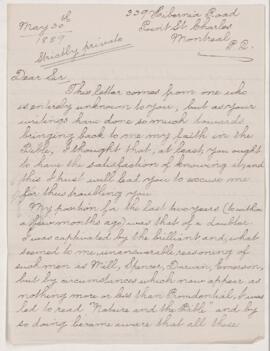 239 Hibernia Road
May 30th Point St. Charles
1889 Montreal,
Strictly private P.Q.
Dear Sir
This letter comes from one who
is entirely unknown to you, but as your
writings have done so much towards
bringing back to me my faith in the
Bible, I thought that, at least, you ought
to have the satisfaction of knowing it, and
this I trust will lead you to excuse me
for thus troubling you.
My position for the last two years (to within
a few months ago) was that of a doubter.
I was captivated by the brilliant and, what
seemed to me, unanswerable reasoning of
such men as Mill, Spencer, Darwin, Emerson,
but by circumstances which now appear as
nothing more or less than Providential, I was
led to read "Nature and the Bible" and by
so doing became aware that all these